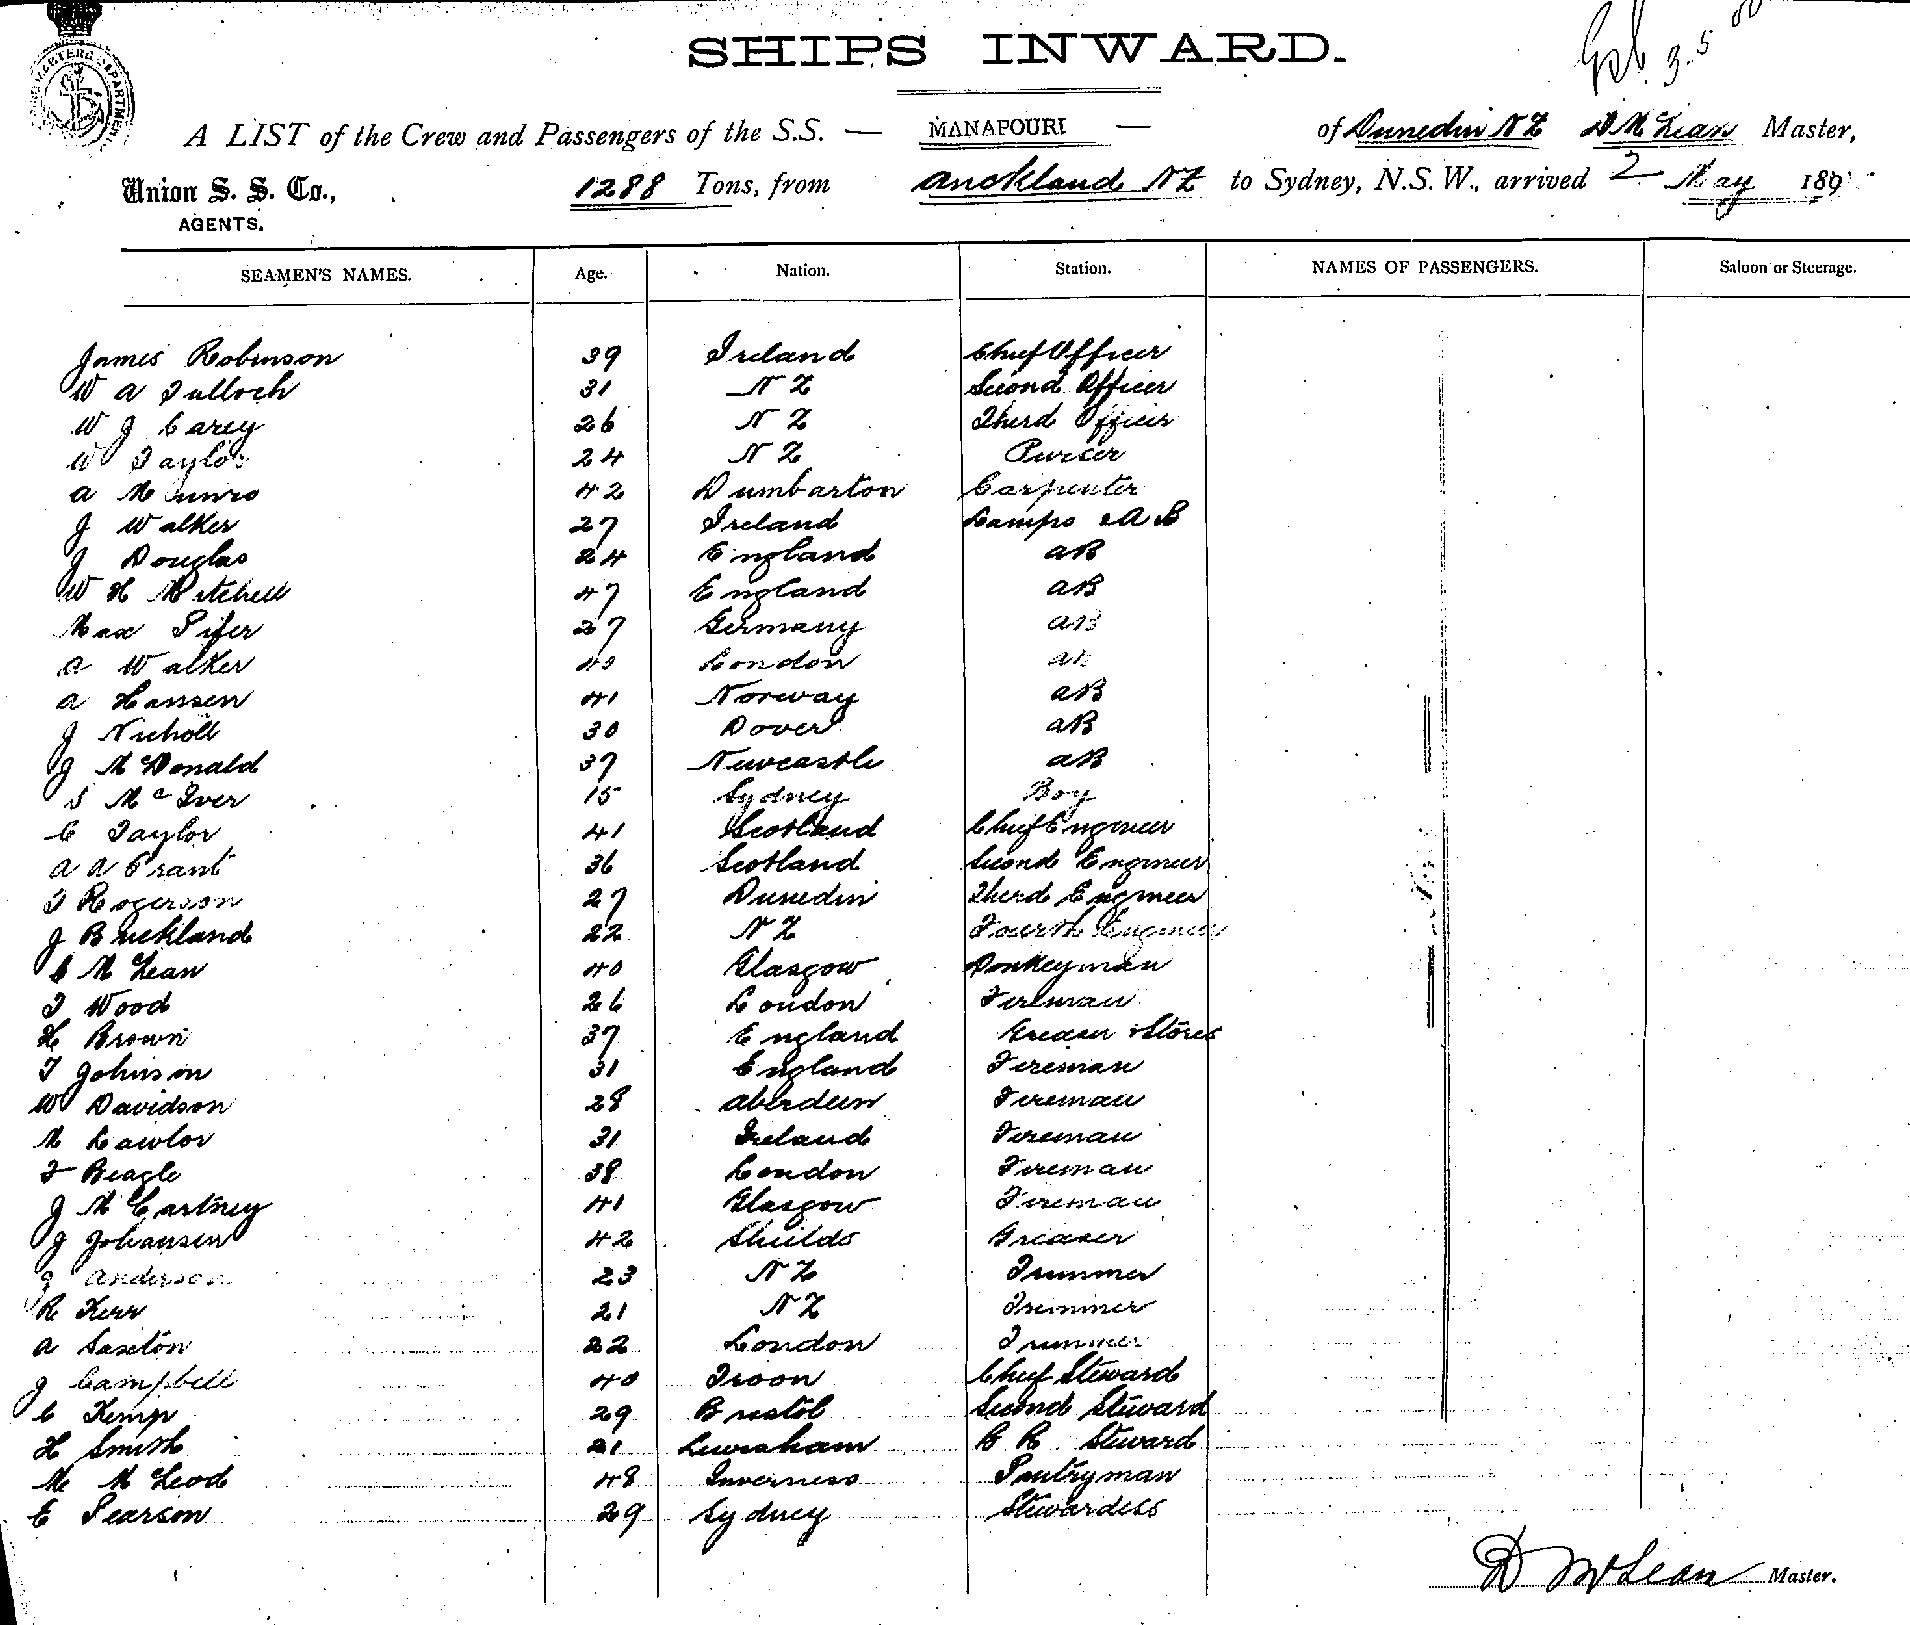 SHIPS INWARD.
3.5
A LIST of the Crew and Passengers of the S.S. — MANAPOURI — of Dunedin NZ D McLean Master,
Union S. S. Co., 1288 Tons, from Auckland NZ to Sydney, N.S.W., arrived 2 May 189
AGENTS.
SEAMEN'S NAMES. Age. Nation. Station. NAMES OF PASSENGERS. Saloon or Steerage.
James Robinson 39 Ireland Chief Officer
W A Tulloch 31 NZ Second Officer
W J Carey 26 NZ Third Officer
W Taylor 24 NZ Purser
A Munro 42 Dumbarton Carpenter
J Walker 27 Ireland Lamps & AB
J Douglas 24 England AB
W H Mitchell 47 England AB
Max Pifer 27 Germany AB
C Walker 40 London AB
A Hansen 41 Norway AB
J Nicholl 30 Dover AB
J McDonald 37 Newcastle AB
S McIver 15 Sydney Boy
C Taylor 41 Scotland Chief Engineer
A A Grant 36 Scotland Second Engineer
T Rogerson 27 Dunedin Third Engineer
J Buckland 22 NZ Fourth Engineer
C McLean 40 Glasgow Donkeyman
T Wood 26 London Fireman
H Brown 37 England Greaser & Stores
T Johnson 31 England Fireman
W Davidson 28 Aberdeen Fireman
M Lawlor 31 Ireland Fireman
F Beagle 38 London Fireman
J McCartney 41 Glasgow Fireman
J Johansen 42 Shields Greaser
J Anderson 23 NZ Trimmer
R Kerr 21 NZ Trimmer
A Saxton 22 London Trimmer
J Campbell 40 Troon Chief Steward
C Kemp 29 Bristol Second Steward
H Smith 21 Lewisham B R Steward
M McLeod 48 Inverness Pantryman
E Pearson 29 Sydney Stewardess
D McLean Master.